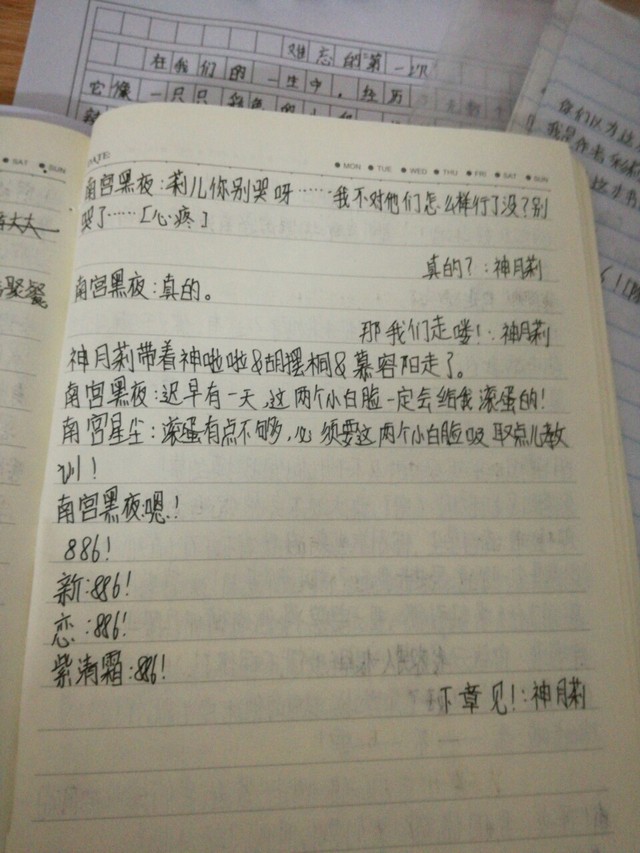 难忘的第一次
在我们的一生中，经历
它像一只只
你们以为这
我是作者
SAT SUN
DATE
MON TUE WED THU FRI SAT SUN
南宫黑夜：莉儿你别哭呀……我不对他们怎么样行了没？别
哭了……[心疼]
真的？：神月莉
南宫黑夜：真的。
那我们走喽！：神月莉
神月莉带着神啦啦&胡摆桐&慕容阳走了。
南宫黑夜：迟早有一天，这两个小白脸一定会给我滚蛋的！
南宫星尘：滚蛋有点不够，必须要这两个小白脸吸取点儿教
训！
南宫黑夜：嗯！
886！
新：886！
恋：886！
紫清霜：886！
下章见！：神月莉